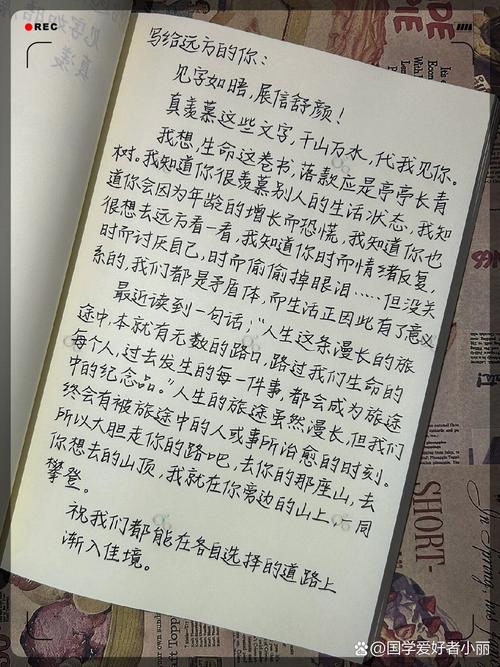 REC
写给远方的你：
见字如晤，展信舒颜！
真羡慕这些文字，千山万水，代我见你。
我想，生命这卷书，落款应是亭亭长青
树。我知道你很羡慕别人的生活状态，我知
道你会因为年龄的增长而恐慌，我知道你也
很想去远方看一看，我知道你时而情绪反复，
时而讨厌自己，时而偷偷掉眼泪……但没关
系的，我们都是矛盾体，而生活正因此有了意义
最近读到一句话；“人生这条漫长的旅
途中，本就有无数的路口，路过我们生命的
每个人，过去发生的每一件事，都会成为旅途
中的纪念品。”人生的旅途虽然漫长，但我们
终会有被旅途中的人或事所治愈的时刻。
所以大胆走你的路吧，去你的那座山，去
你想去的山顶，我就在你旁边的山上，一同
攀登。
祝我们都能在各自选择的道路上
渐入佳境。
SHORT-
@国学爱好者小丽